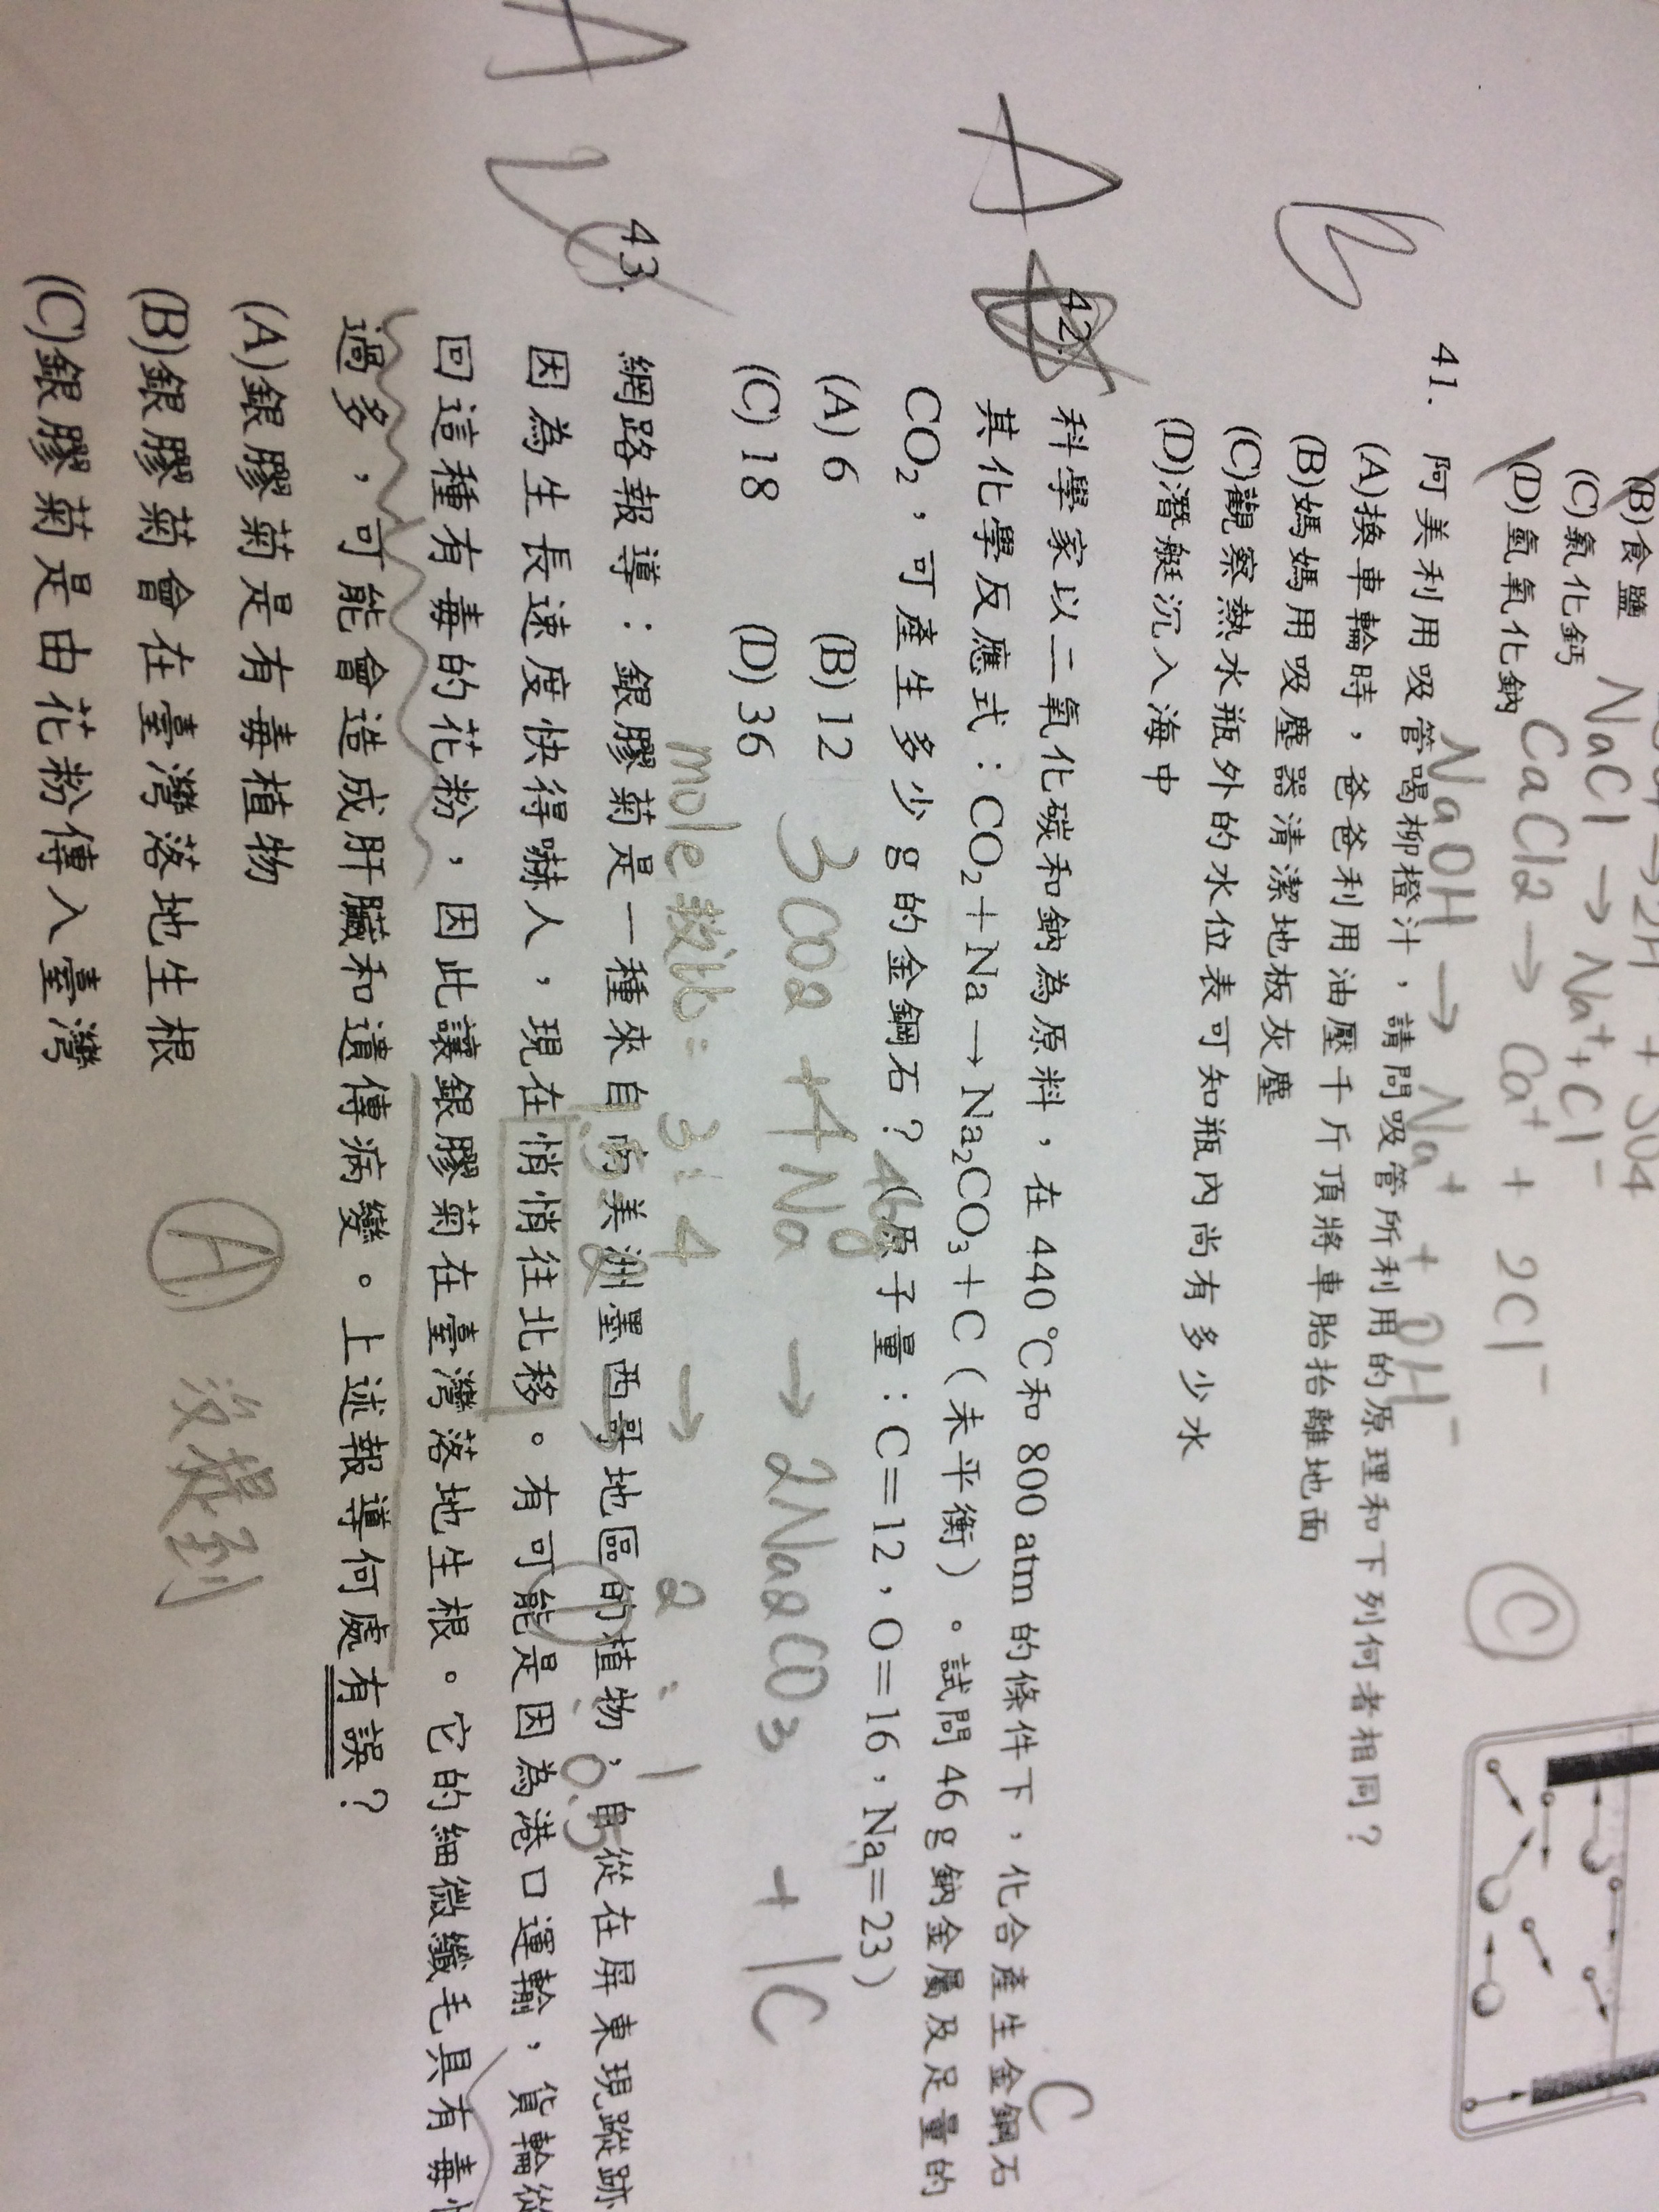 (B)食鹽 NaCl → Na⁺ + Cl⁻
(C)氯化鈣 CaCl2 → Ca⁺ + 2Cl⁻
(D)氫氧化鈉 NaOH → Na⁺ + OH⁻
C
B
41. 阿美利用吸管喝柳橙汁，請問吸管所利用的原理和下列何者相同？
(A)換車輪時，爸爸利用油壓千斤頂將車胎抬離地面
(B)媽媽用吸塵器清潔地板灰塵
(C)觀察熱水瓶外的水位表可知瓶內尚有多少水
(D)潛艇沉入海中
A
C
42. 科學家以二氧化碳和鈉為原料，在 440 ℃和 800 atm 的條件下，化合產生金鋼石
其化學反應式：CO₂＋Na→Na₂CO₃＋C（未平衡）。試問 46 g 鈉金屬及足量的
CO₂，可產生多少 g 的金鋼石？（原子量：C＝12，O＝16，Na＝23）
46g
(A) 6 (B) 12
(C) 18 (D) 36
3CO2 + 4Na → 2Na2CO3 + 1C
mole數比: 3 : 4 → 2 : 1
0.5
A
43. 網路報導：銀膠菊是一種來自南美洲墨西哥地區的植物，自從在屏東現蹤跡
因為生長速度快得嚇人，現在悄悄往北移。有可能是因為港口運輸，貨輪從
回這種有毒的花粉，因此讓銀膠菊在臺灣落地生根。它的細微纖毛具有毒性
過多，可能會造成肝臟和遺傳病變。上述報導何處有誤？
(A)銀膠菊是有毒植物
(B)銀膠菊會在臺灣落地生根
(C)銀膠菊是由花粉傳入臺灣
A 沒提到